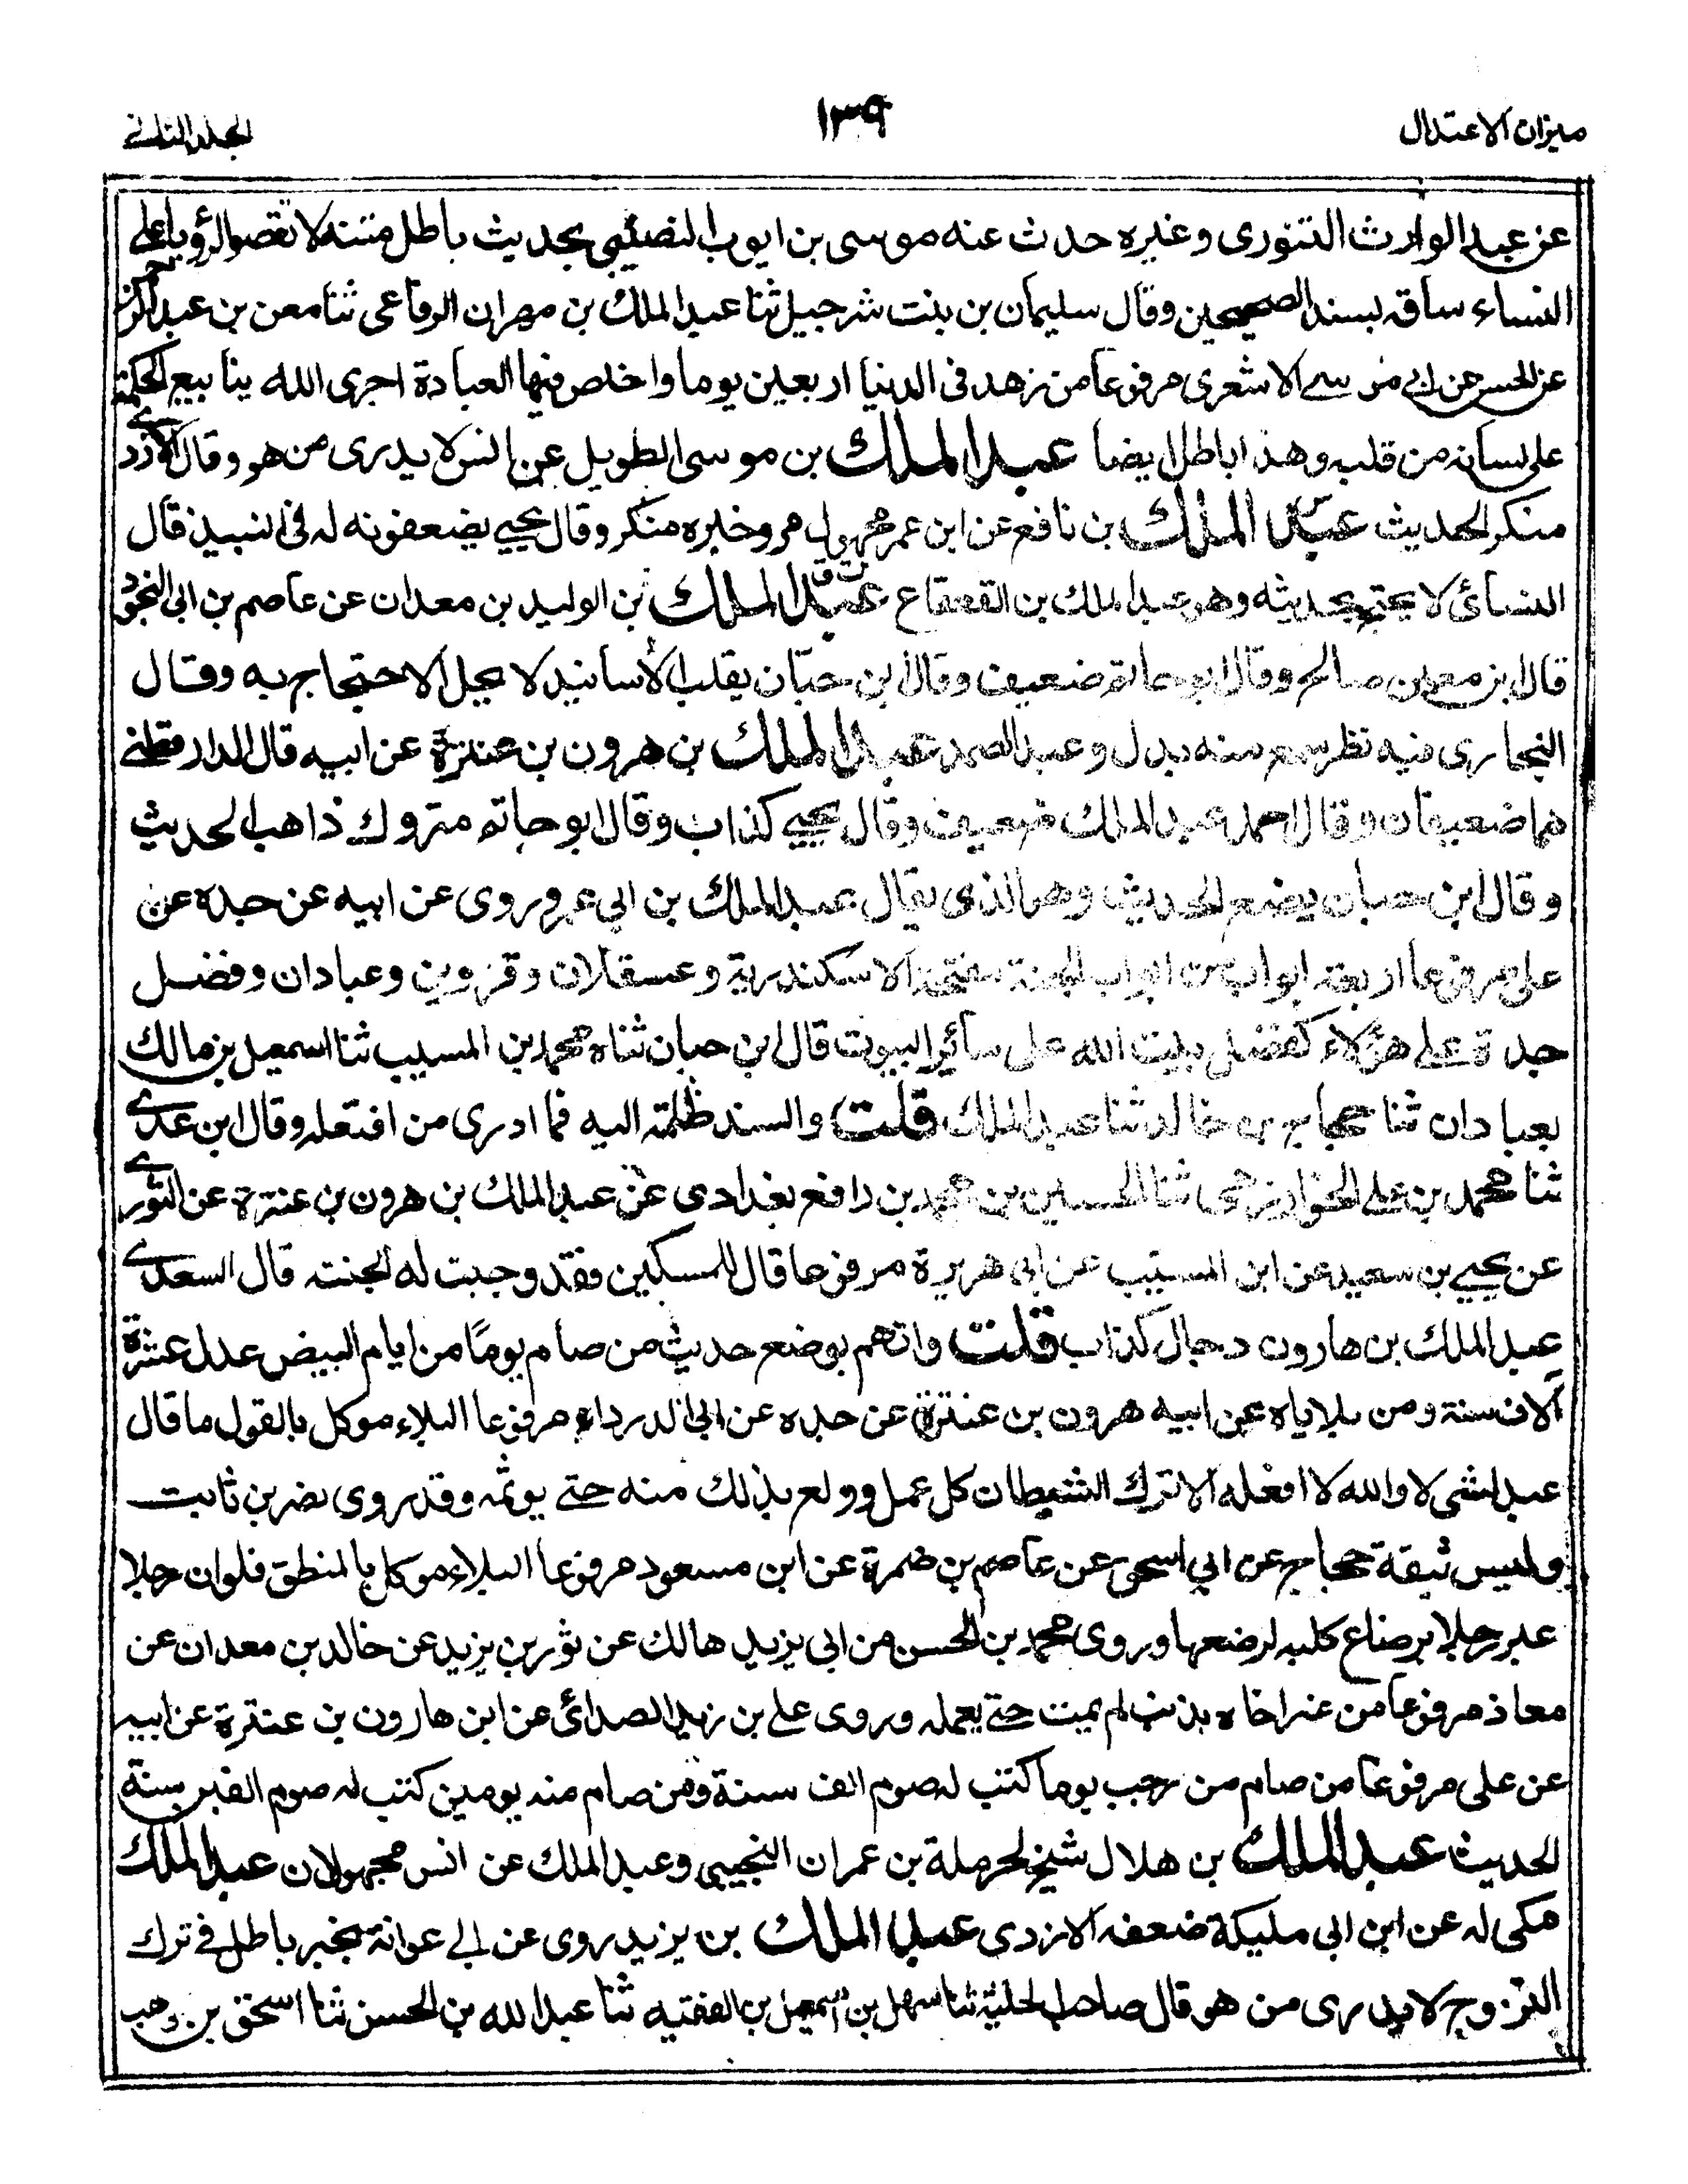 ميزان الاعتدال
١٣٩
الجلد الثانى
عن عبد الوارث التنورى وغيره حدث عنه موسى بن ايوب النصيبى بحديث باطل متنه لا تقصوا الرؤيا على
النساء ساقه بسند الصحيحين وقال سليمان بن بنت شرحبيل ثنا عبد الملك بن مهران الرقاعى ثنا معن بن عبد الرحمن
عن الحسن عن ابى موسى الاشعرى مرفوعا من زهد فى الدنيا اربعين يوما واخلص فيها العبادة اجرى الله ينابيع الحكمة
على لسانه من قلبه وهذا باطل ايضا عبد الملك بن موسى الطويل عن انس لا يدرى من هو وقال الازدى
منكر الحديث عبد الملك بن نافع عن ابن عمر مجهول مر وخبره منكر وقال يحيى يضعفونه له فى النبيذ قال
النسائى لا يحتج بحديثه وهو عبد الملك بن القعقاع عبد الملك بن الوليد بن معدان عن عاصم بن ابى النجود
قال ابن معين صالح وقال ابو حاتم ضعيف وقال ابن حبان يقلب الأسانيد لا يحل الاحتجاج به وقال
البخارى فيه نظر سمع منه بدل وعبد الصمد عبد الملك بن هرون بن عنترة عن ابيه قال الدارقطنى
هما ضعيفان وقال احمد عبد الملك ضعيف وقال يحيى كذاب وقال ابو حاتم متروك ذاهب الحديث
وقال ابن حبان يضع الحديث وهو الذى يقال عبد الملك بن ابى عمرو روى عن ابيه عن جده عن
على مرفوعا اربعة ابواب من ابواب الجنة مفتحة الاسكندرية وعسقلان وقزوين وعبادان وفضل
جدة على هؤلاء كفضل بيت الله على سائر البيوت قال ابن حبان ثناه محمد بن المسيب ثنا اسمعيل بن مالك
بعبادان ثنا حجاج بن خالد ثنا عبد الملك قلت والسند ظلمة اليه فما ادرى من افتعله وقال ابن عدى
ثنا محمد بن على الخوارزمى ثنا الحسين بن محمد بن رافع بغدادى عن عبد الملك بن هرون بن عنترة عن الثورى
عن يحيى بن سعيد عن ابن المسيب عن ابى هريرة مرفوعا قال للمسكين فقد وجبت له الجنة قال السعدى
عبد الملك بن هارون دجال كذاب قلت واتهم بوضع حديث من صام يومًا من ايام البيض عدل عشرة
آلاف سنة ومن بلاياه عن ابيه هرون بن عنترة عن جده عن ابى الدرداء مرفوعا البلاء موكل بالقول ما قال
عبد لشى لا والله لا افعله الا ترك الشيطان كل عمل وولع بذلك منه حتى يوثمه وقد روى نضر بن ثابت
وليس بثقة حجاج عن ابى اسحق عن عاصم بن ضمرة عن ابن مسعود مرفوعا البلاء موكل بالمنطق فلو ان رجلا
عير رجلا برضاع كلبه لرضعها وروى محمد بن الحسن من ابى يزيد هالك عن ثور بن يزيد عن خالد بن معدان عن
معاذ مرفوعا من عير اخاه بذنب لم يمت حتى يعمله وروى على بن زيد الصدائى عن ابن هارون بن عنترة عن ابيه
عن على مرفوعا من صام من رجب يوما كتب له صوم الف سنة ومن صام منه يومين كتب له صوم الفى سنة
الحديث عبد الملك بن هلال شيخ لحرملة بن عمران التجيبى وعبد الملك عن انس مجهولان عبد الملك
مكى له عن ابن ابى مليكة ضعفه الازدى عبد الملك بن يزيد روى عن ابى عوانة بخبر باطل فى ترك
التزوج لا يدرى من هو قال صاحب الحلية ثنا سهل بن اسمعيل بن الفقيه ثنا عبد الله بن الحسن ثنا اسحق بن وهب